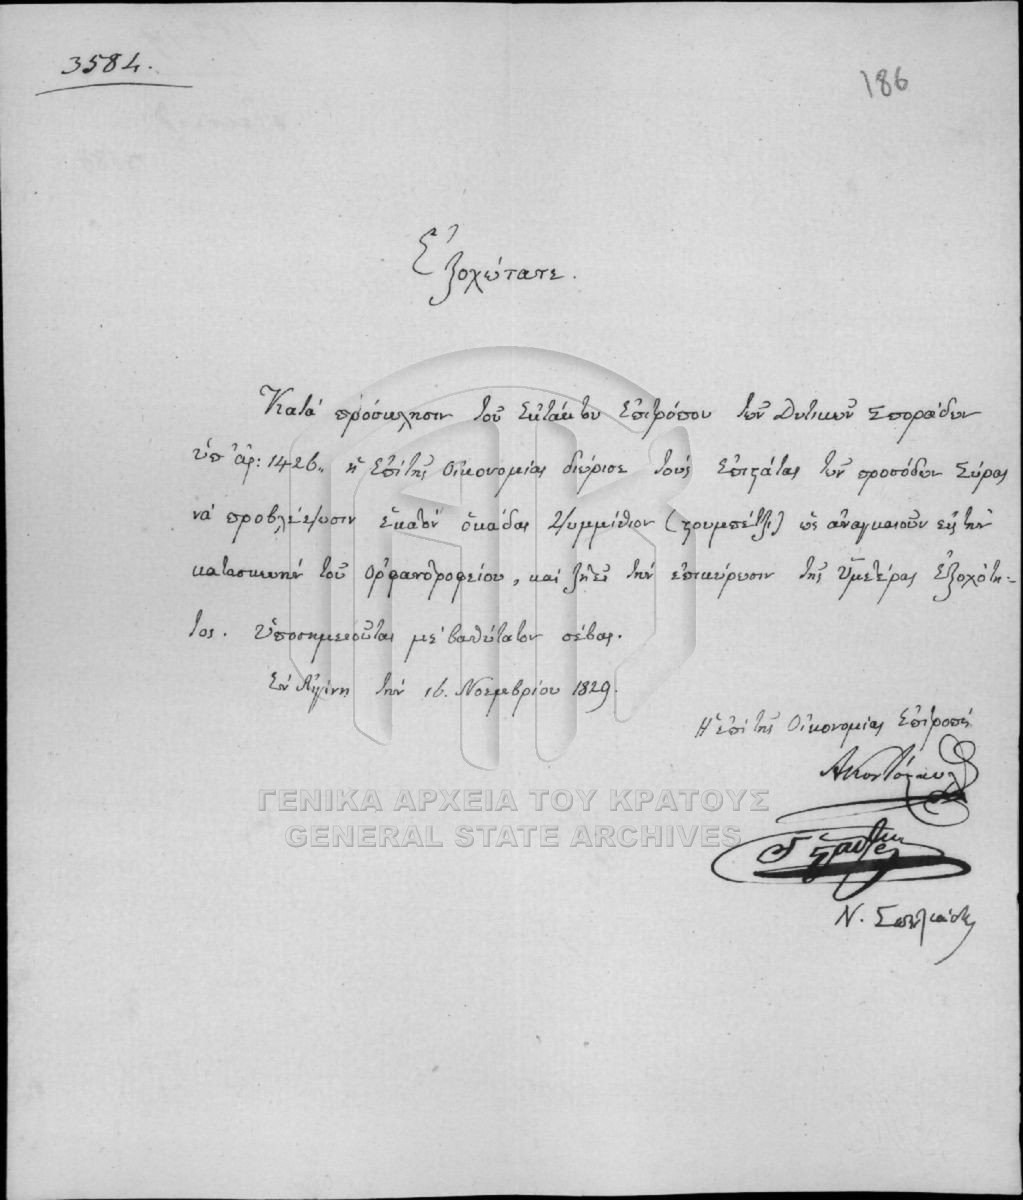 3584.
186
Ἐξοχώτατε.
Κατὰ πρόσκλησιν τοῦ Ἐκτάκτου Ἐπιτρόπου τῶν Δυτικῶν Σποράδων
ὑπ' ἀρ: 1426,, ἡ Ἐπὶ τῆς Οἰκονομίας διώρισε τοὺς ἐπιστάτας τῶν προσόδων Σύρας
νὰ προβλέψωσιν ἑκατὸν ὀκάδας ψυμμίθιον (στουμπέτζι) ὡς ἀναγκαιοῦν εἰς τὴν
κατασκευὴν τοῦ Ὀρφανοτροφείου, καὶ ζητεῖ τὴν ἐπικύρωσιν τῆς Ὑμετέρας Ἐξοχότη-
τος. Ὑποσημειοῦται μὲ βαθύτατον σέβας.
Ἐν Αἰγίνῃ τὴν 16. Νοεμβρίου 1829.
Ἡ ἐπὶ τῆς Οἰκονομίας Ἐπιτροπή
Α Κοντόσταυλ
ΓΕΝΙΚΑ ΑΡΧΕΙΑ ΤΟΥ ΚΡΑΤΟΥΣ
GENERAL STATE ARCHIVES
Γ Σταύρου
Ν.